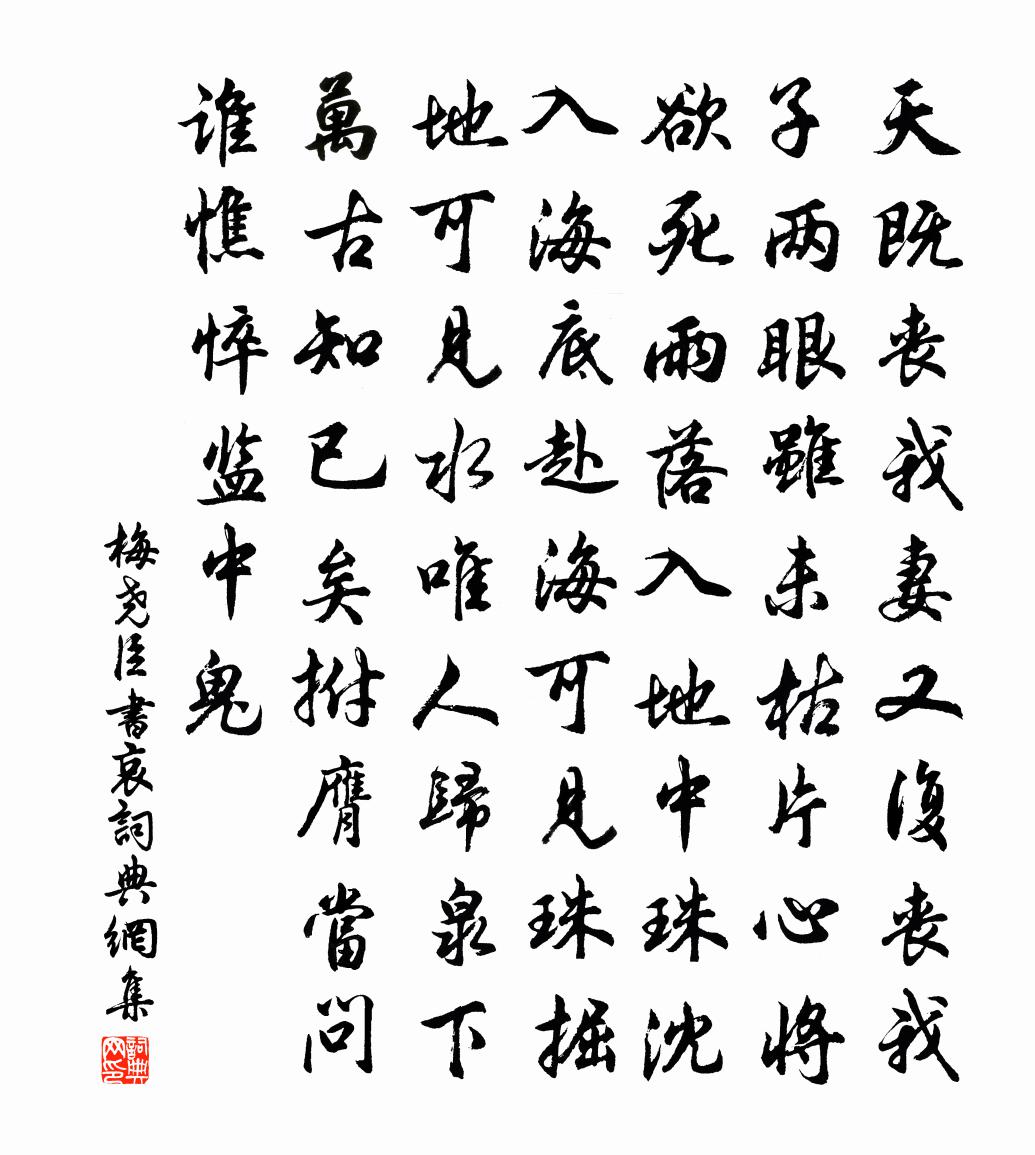 天既丧我妻又復丧我
子两眼雖未枯片心将
欲死雨落入地中珠沈
入海底赴海可見珠掘
地可見水唯人歸泉下
萬古知已矣拊膺當問
誰憔悴监中鬼
梅尧臣書哀詞典網集
詞典网印